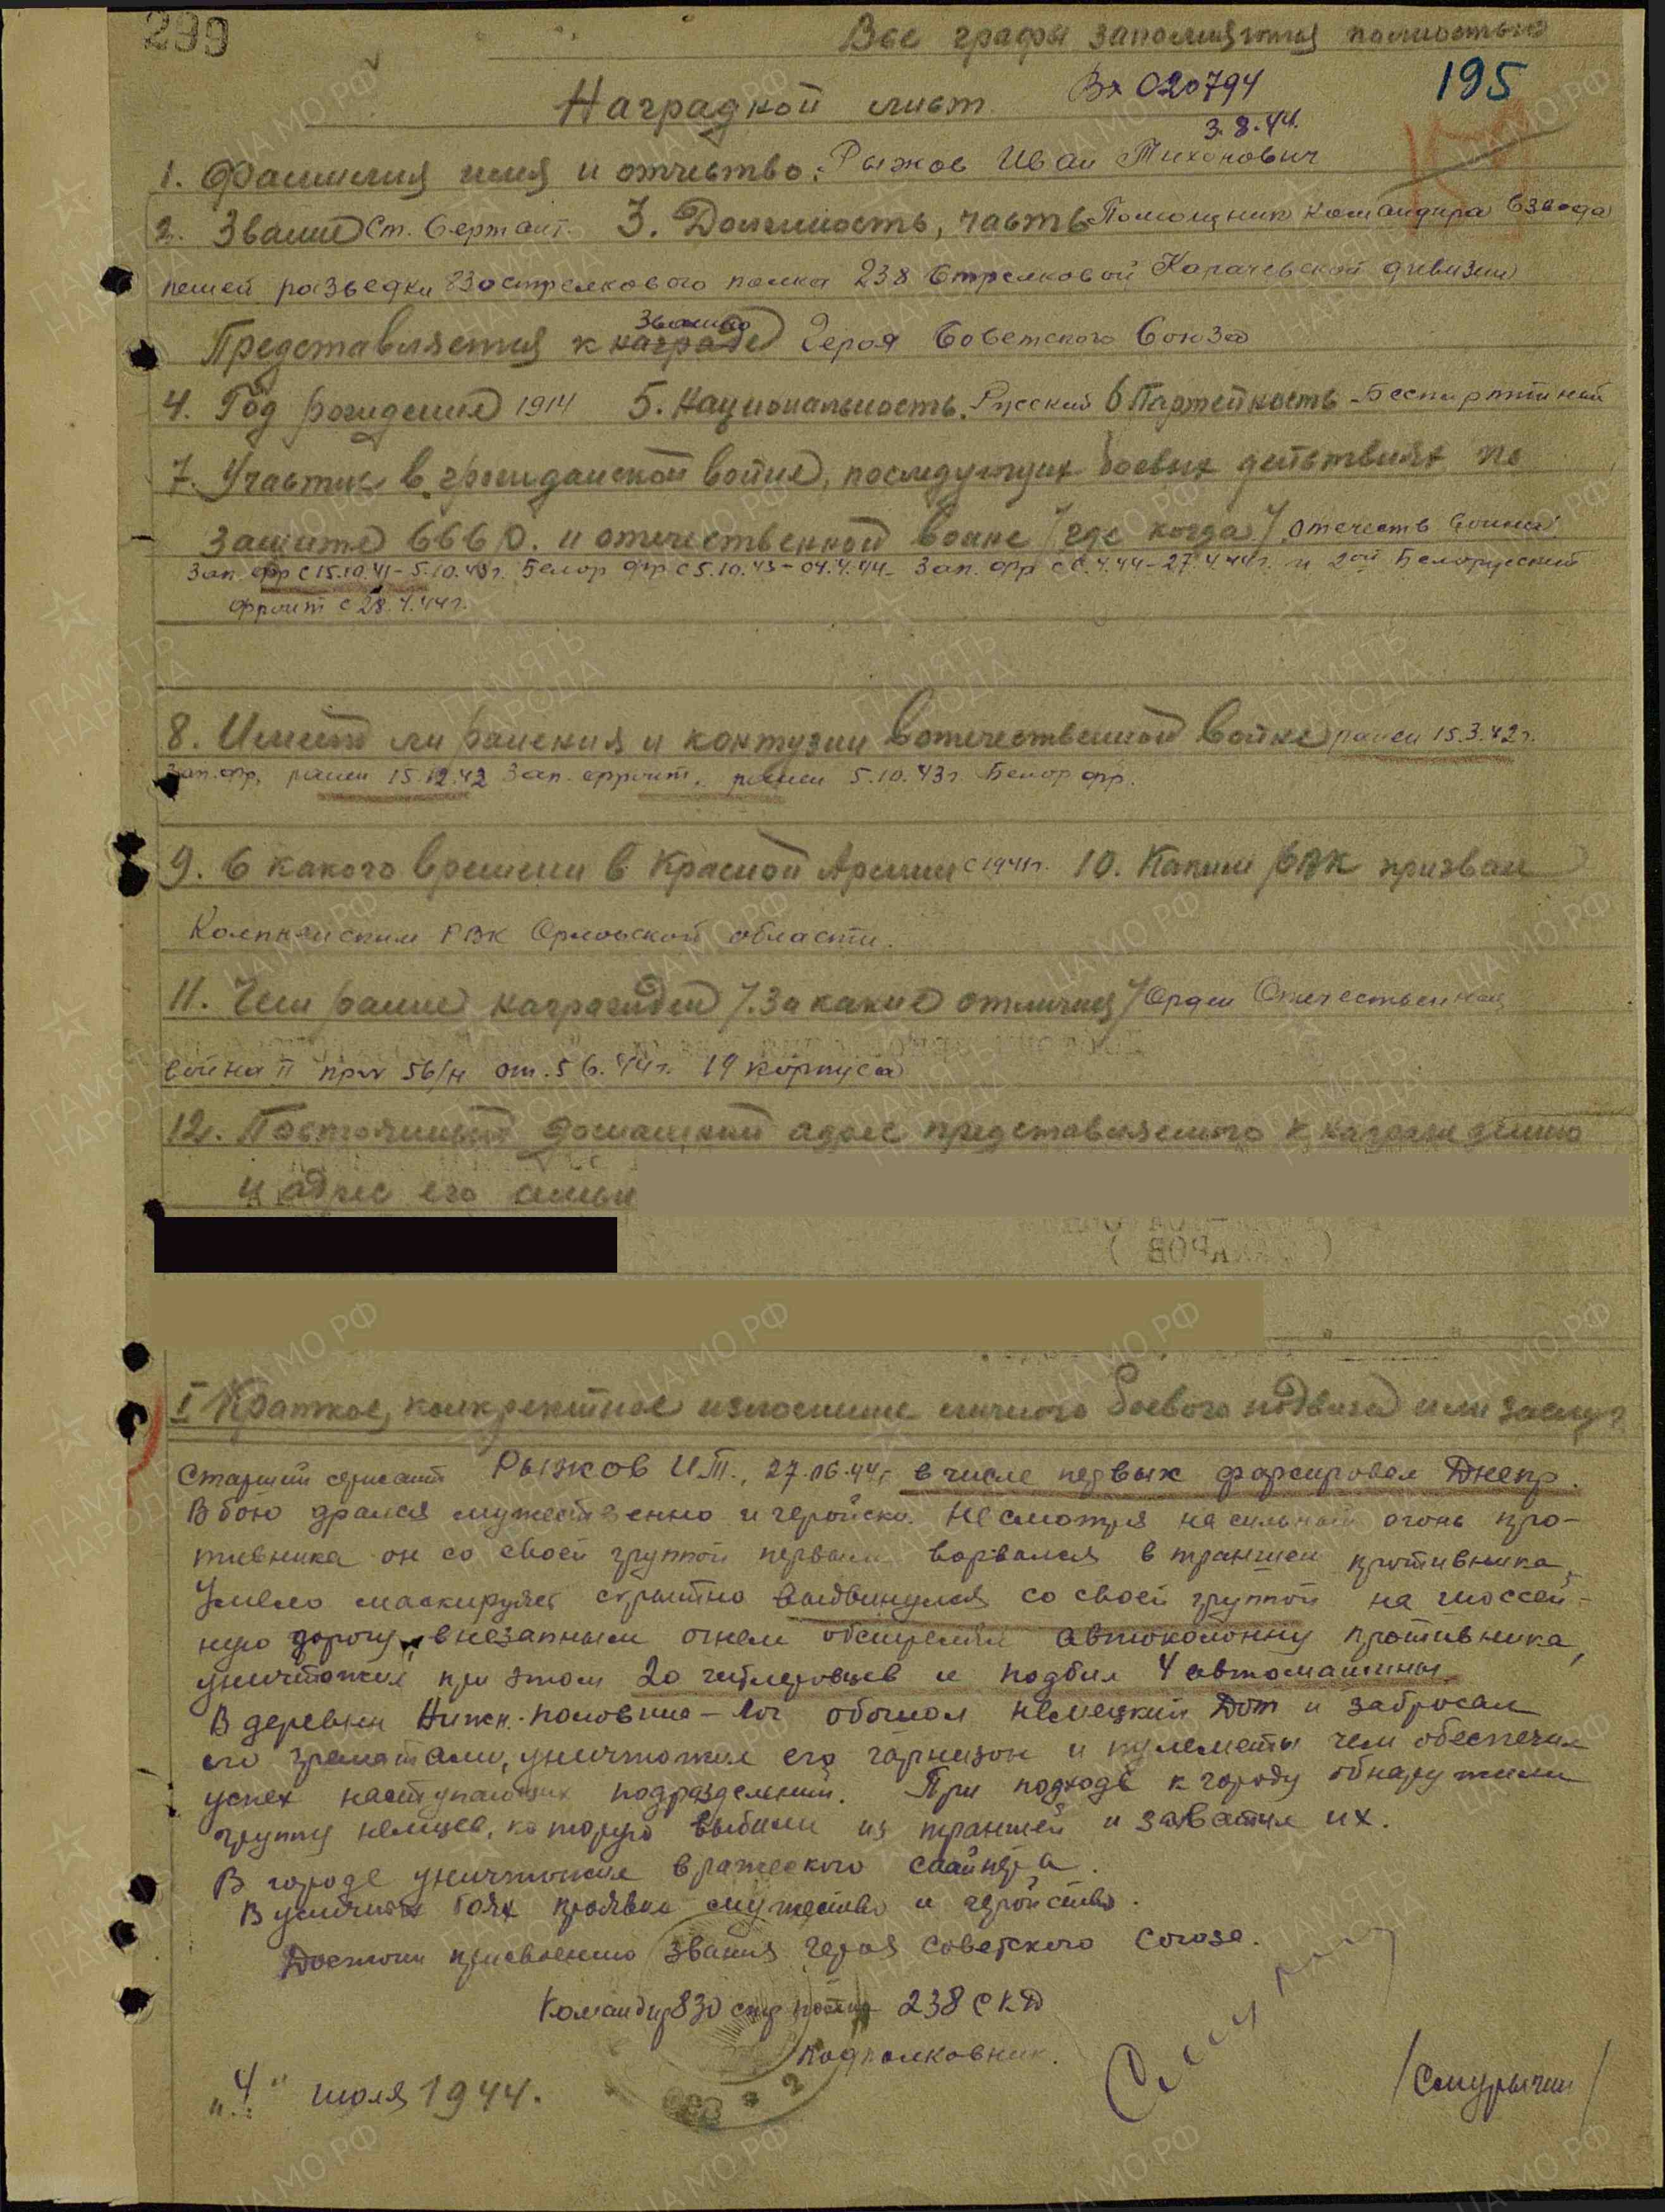 299
Все графы заполняются полностью
195
Наградной лист Вх 020794
3.8.44.
1. Фамилия имя и отчество: Рыжов Иван Тихонович
2. Звание Ст. Сержант. 3. Должность, часть Помощник командира взвода
пешей разведки 830 стрелкового полка 238 Стрелковой Карачевской дивизии
Представляется к награде званию Героя Советского Союза
4. Год рождения 1914 5. Национальность. Русский 6 Партейность Беспартийный
7. Участие в гражданской войне, последующих боевых действиях по
защите СССР. и отечественной войне /где когда/ отечеств война:
Зап. фр с 15.10.41 - 5.10.43г. Белор фр с 5.10.43 - 04.4.44 - Зап. фр с 4.44 - 27.4.44г. и 2ой Белорусский
фронт с 28.4.44г.
8. Имеет ли ранения и контузии в отечественной войне ранен 15.3.42г.
Зап. фр, ранен 15.12.42 Зап. фронт, ранен 5.10.43г. Белор фр.
9. С какого времени в Красной Армии с 1941г. 10. Каким РВК призван
Колпнянским РВК Орловской области.
11. Чем ранее награжден /. За какие отличия / Орден Отечественная
война II пр № 56/н от. 5 6. 44г. 19 корпуса
12. Постоянный домашний адрес представляемого к награждению
и адрес его семьи
I Краткое, конкретное изложение личного боевого подвига или заслуг
Старший сержант Рыжов И.Т., 27.06.44г в числе первых форсировал Днепр.
В бою дрался мужественно и геройски. Несмотря на сильный огонь про-
тивника он со своей группой первым ворвался в траншеи противника,
Умело маскируясь скрытно выдвинулся со своей группой на шоссей-
ную дорогу, внезапным огнем обстрелял автоколонну противника,
уничтожил при этом 20 гитлеровцев и подбил 4 автомашины.
В деревни Нижн. Половино - Лог обошол немецкий Дот и забросал
его гранатами, уничтожил его гарнизон и пулеметы чем обеспечил
успех наступающих подразделений. При подходе к городу обнаружили
группу немцев, которую выбили из траншей и захватил их.
В городе уничтожил вражеского снайпера.
В уличных боях проявил мужество и геройство.
Достоин присвоению звания героя Советского Союза.
Командир 830 стр полка 238 СКД
Подполковник.
/Смурыгин/
"4" июля 1944.
ПАМЯТЬ НАРОДА
ЦА МО РФ